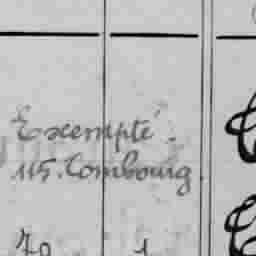 Exempté.
115. Combourg.
70 1